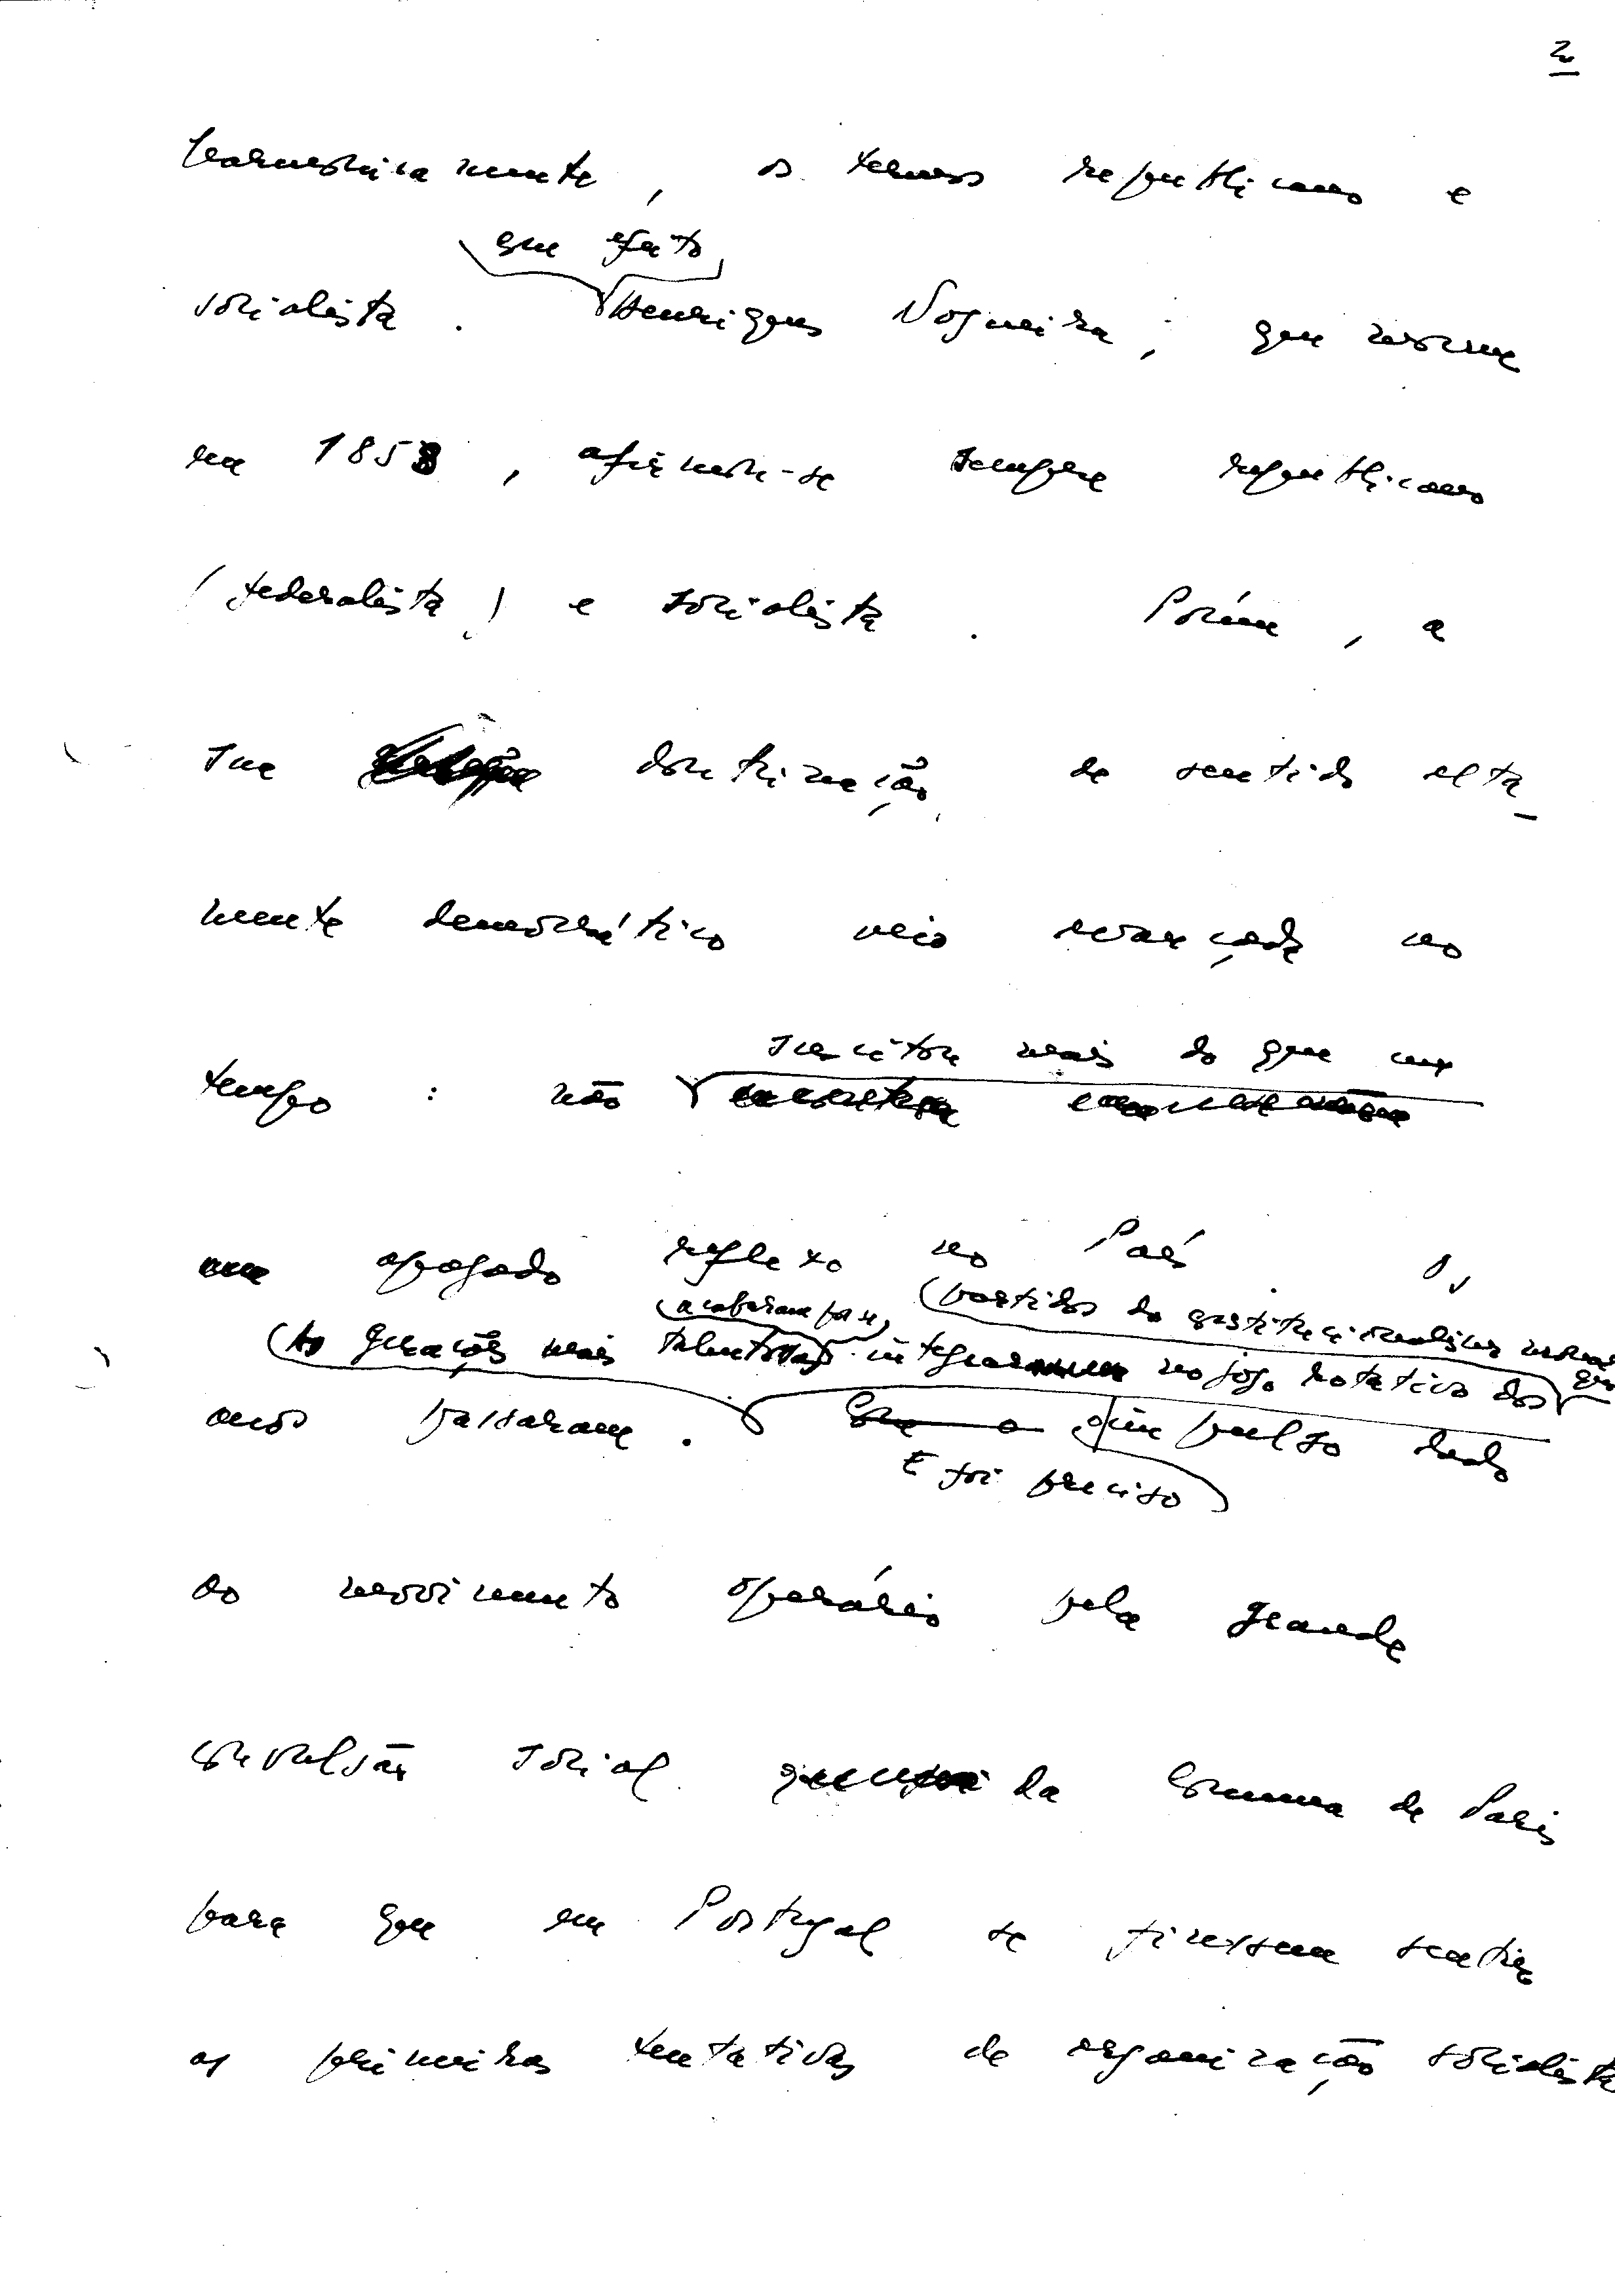 2
harmonicamente, os termos republicano e
que efeito
socialista. Henriques Nogueira, que morre
em 1858, afirmou-se sempre republicano
(federalista) e socialista. Porém, a
sua doutrinação, de sentido alta-
mente democrático veio avançada no
suscitou mais do que um
tempo: não
apagado reflexo no País. Os
acabaram por se partidos do constitucionalismo
As gerações mais talentosas integrar no jogo rotativo dos
anos passaram. Com o impulso dado
E foi preciso
ao movimento operário pela grande
convulsão social da Comuna de Paris
para que em Portugal se fizessem sentir
as primeiras tentativas de organização socialista